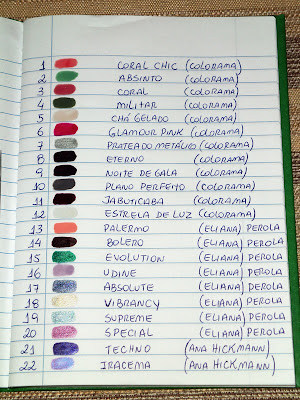 1 CORAL CHIC (COLORAMA)
2 ABSINTO (COLORAMA)
3 CORAL (COLORAMA)
4 MILITAR (COLORAMA)
5 CHÁ GELADO (COLORAMA)
6 GLAMOUR PINK (COLORAMA)
7 PRATEADO METÁLICO (COLORAMA)
8 ETERNO (COLORAMA)
9 NOITE DE GALA (COLORAMA)
10 PLANO PERFEITO (COLORAMA)
11 JABUTICABA (COLORAMA)
12 ESTRELA DE LUZ (COLORAMA)
13 PALERMO (ELIANA) PEROLA
14 BOLERO (ELIANA) PEROLA
15 EVOLUTION (ELIANA) PEROLA
16 UDINE (ELIANA) PEROLA
17 ABSOLUTE (ELIANA) PEROLA
18 VIBRANCY (ELIANA) PEROLA
19 SUPREME (ELIANA) PEROLA
20 SPECIAL (ELIANA) PEROLA
21 TECHNO (ANA HICKMANN)
22 IRACEMA (ANA HICKMANN)